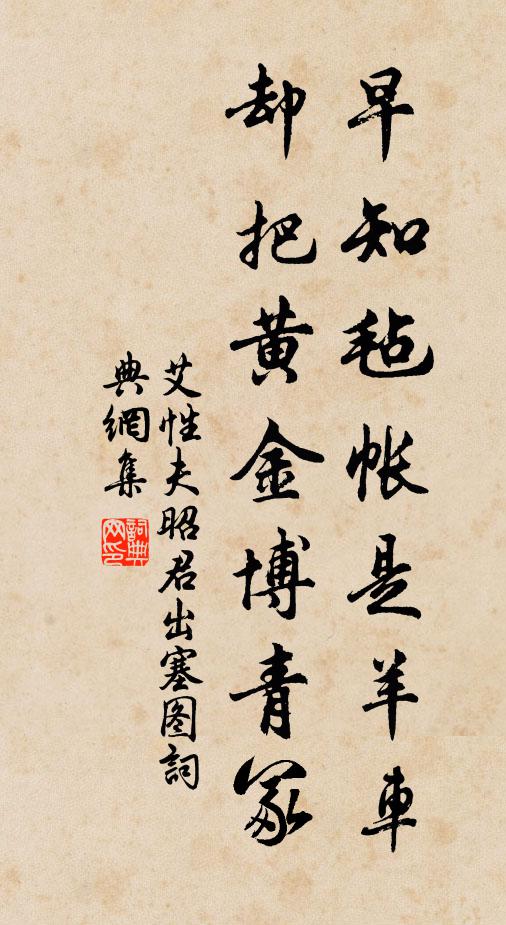 早知毡帐是羊車
却把黄金博青冢
艾性夫昭君出塞图詞
典網集
詞典网印